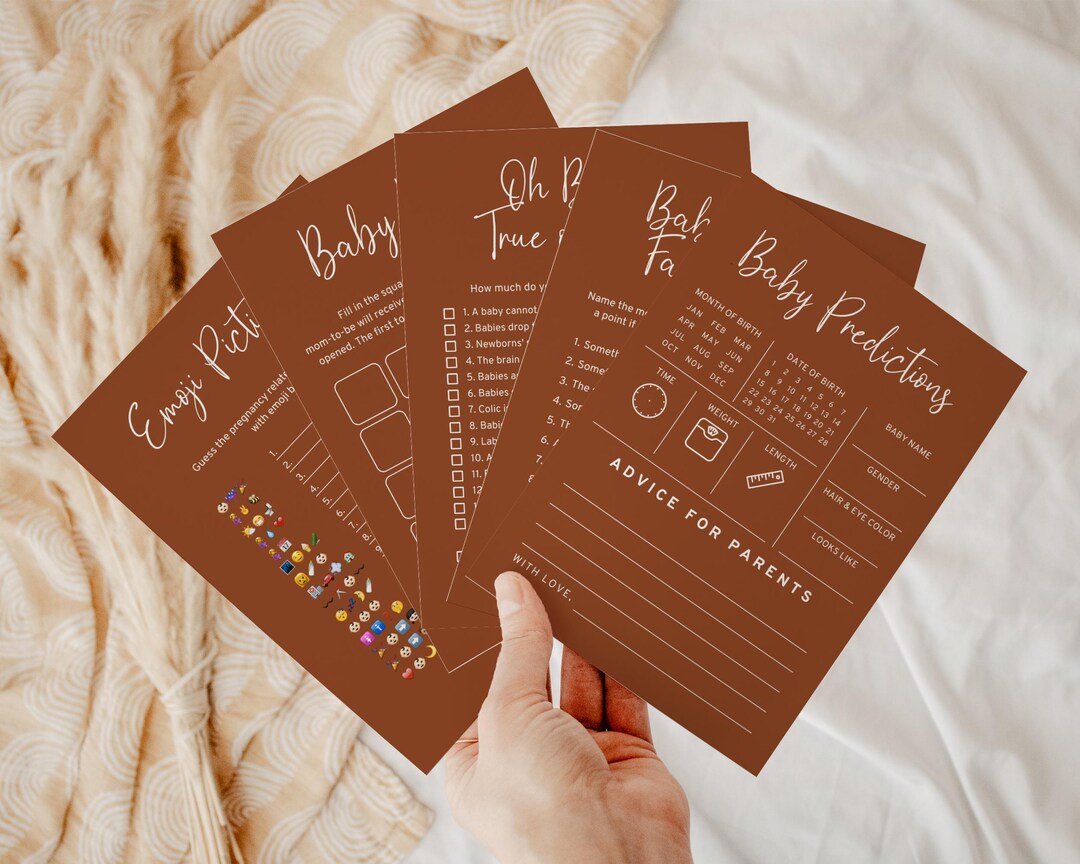 Emoji
Guess the pregnancy
with emoji
1.
2.
3.
4.
5.
6.
7.
8.
Baby
Fill in the
mom-to-be will receive
opened. The first to
Oh
True
How much do
1. A baby cannot
2. Babies drop
3. Newborns'
4. The brain
5. Babies
6. Babies
7. Colic
8.
9.
10.
11.
12
Name the
a point if
1.
2.
3. The
4.
5.
6.
7.
Baby Predictions
MONTH OF BIRTH
JAN FEB MAR
APR MAY JUN
JUL AUG SEP
OCT NOV DEC
DATE OF BIRTH
1 2 3 4 5 6 7
8 9 10 11 12 13 14
15 16 17 18 19 20 21
22 23 24 25 26 27 28
29 30 31
TIME
WEIGHT
LENGTH
BABY NAME
GENDER
HAIR & EYE COLOR
LOOKS LIKE
ADVICE FOR PARENTS
WITH LOVE,